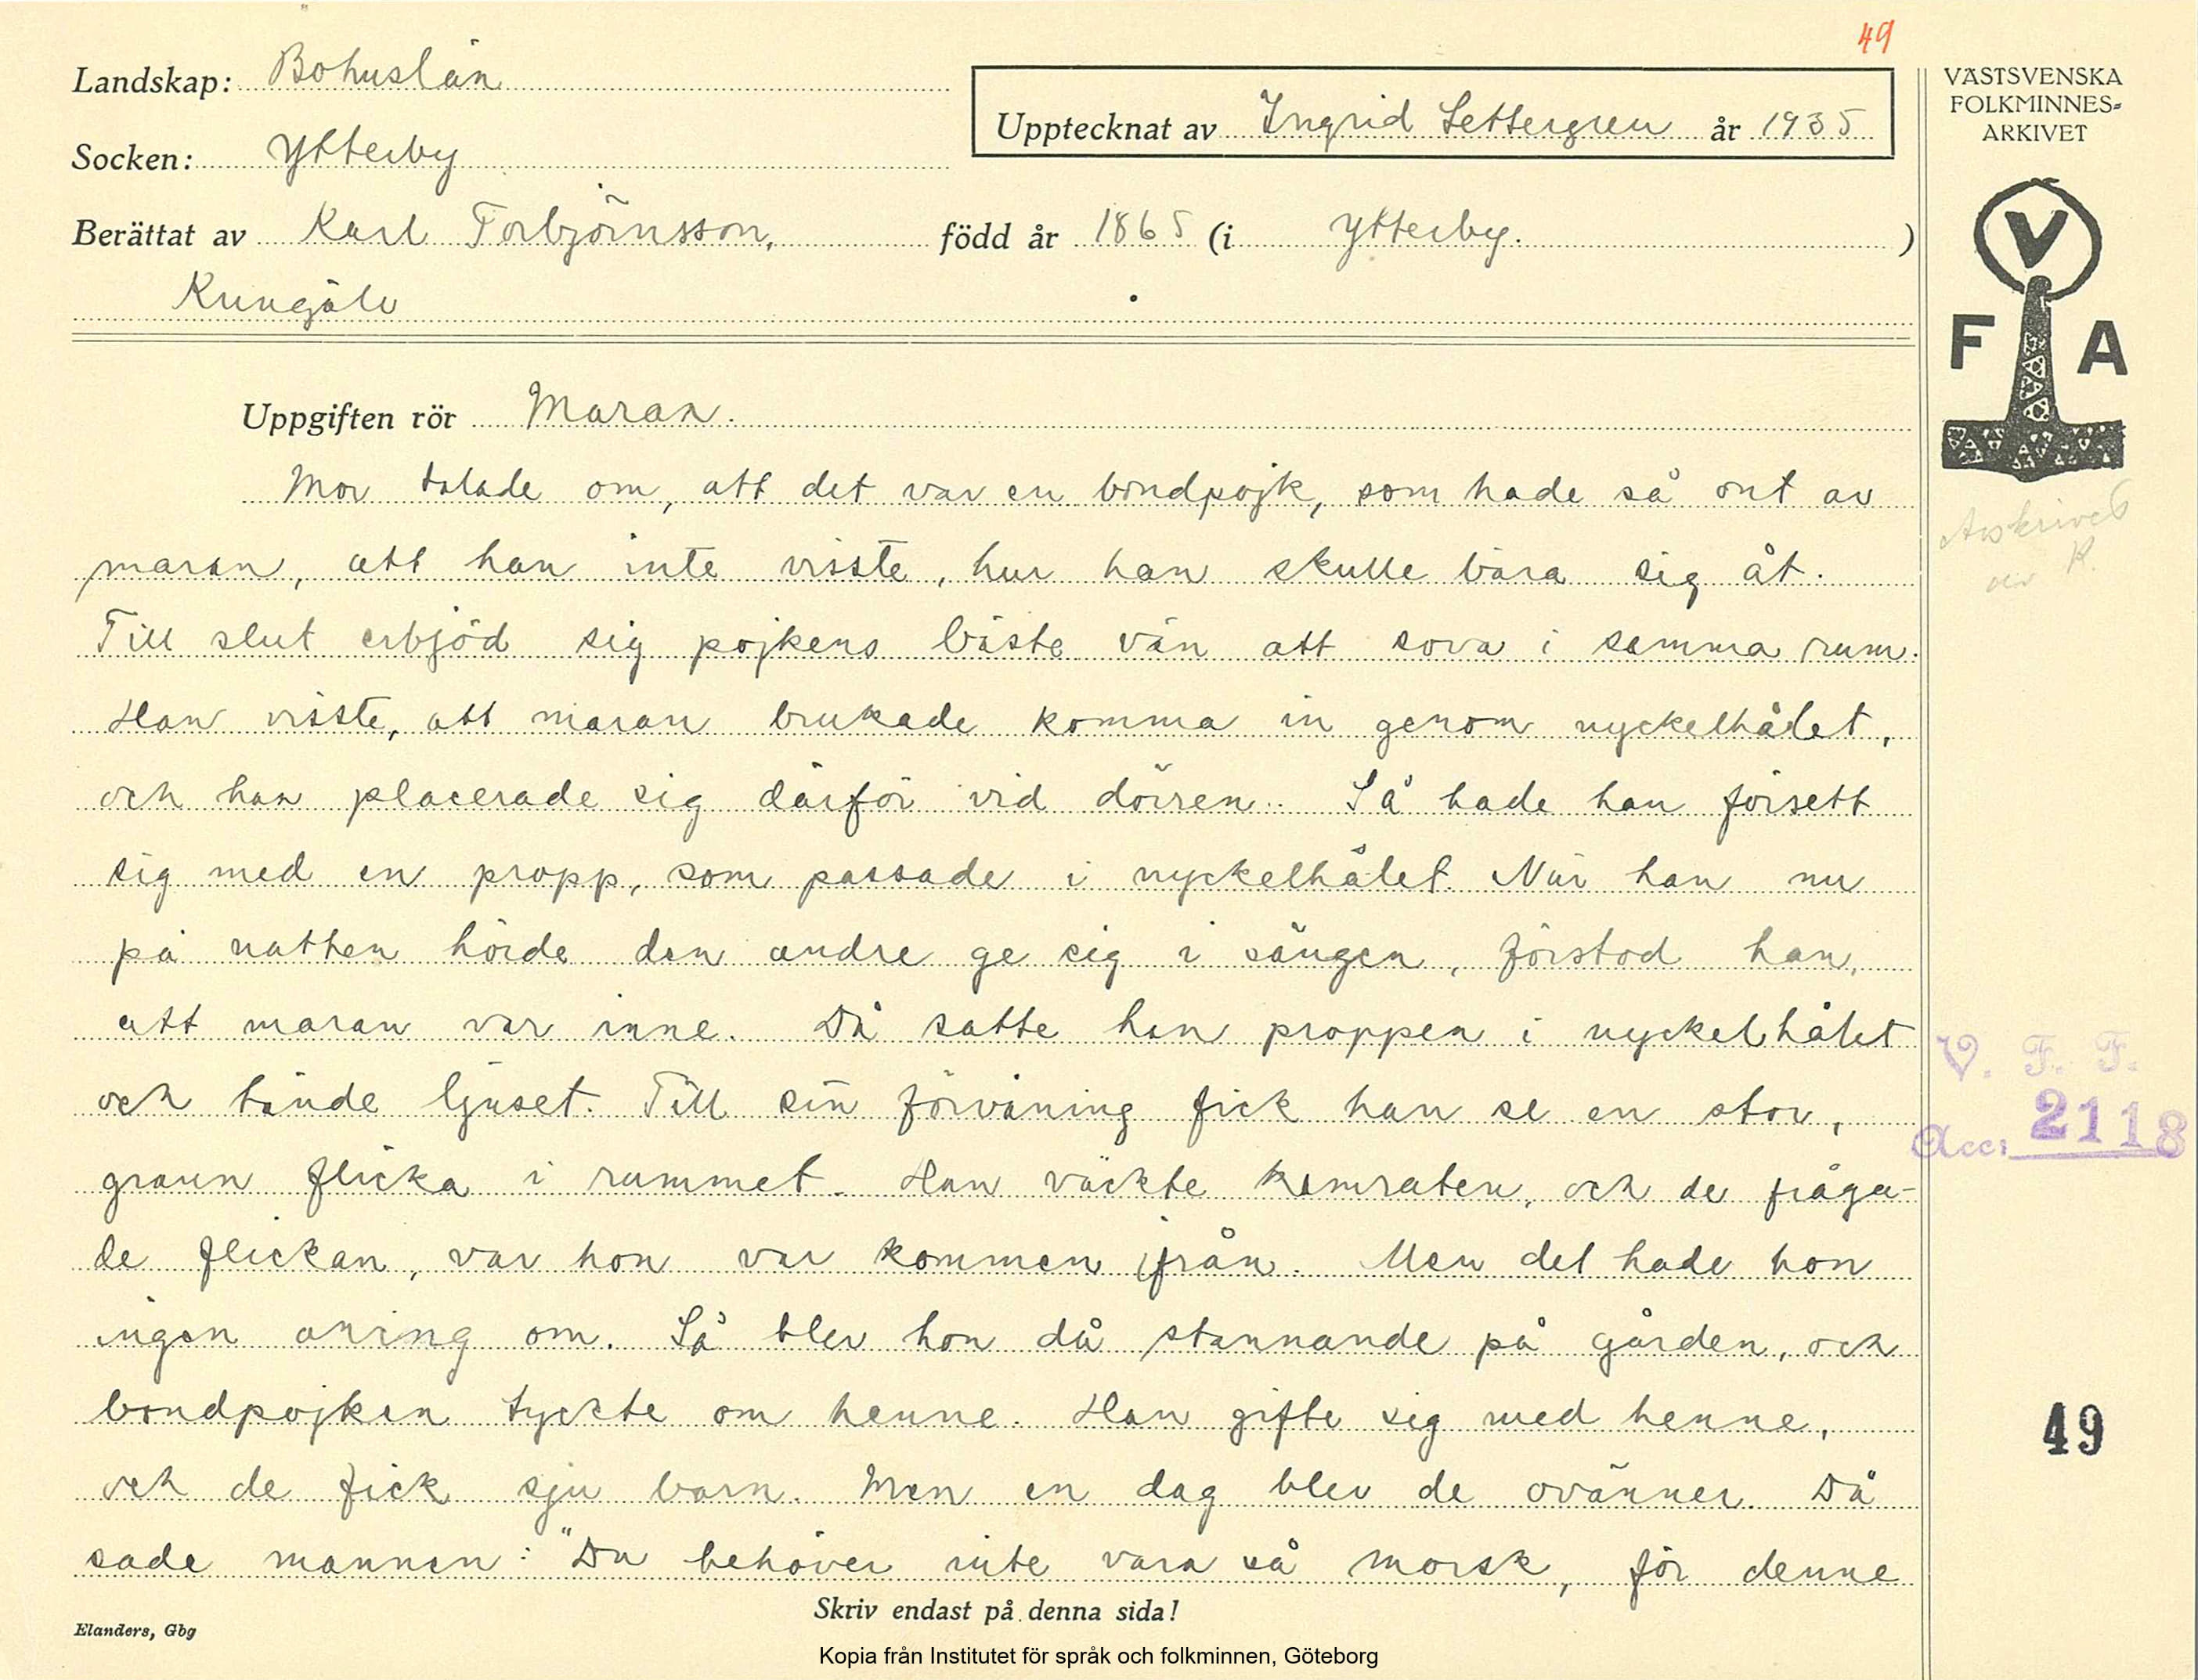 49
Landskap: Bohuslän
Socken: Ytterby
Upptecknat av Ingrid Settergren år 1935
Berättat av Karl Torbjörnsson, född år 1865 (i Ytterby. )
Kungälv
VÄSTSVENSKA
FOLKMINNES-
ARKIVET
V
F A
Uppgiften rör Maran.
Mor talade om, att det var en bondpojk, som hade så ont av
maran, att han inte visste, hur han skulle bära sig åt.
Till slut erbjöd sig pojkens bäste vän att sova i samma rum.
Han visste, att maran brukade komma in genom nyckelhålet,
och han placerade sig därför vid dörren. Så hade han försett
sig med en propp, som passade i nyckelhålet. När han nu
på natten hörde den andre ge sig i sängen, förstod han,
att maran var inne. Då satte han proppen i nyckelhålet
och tände ljuset. Till sin förvåning fick han se en stor,
grann flicka i rummet. Han väckte kamraten, och de fråga-
de flickan, var hon var kommen ifrån. Men det hade hon
ingen aning om. Så blev hon då stannande på gården, och
bondpojken tyckte om henne. Han gifte sig med henne,
och de fick sju barn. Men en dag blev de ovänner. Då
sade mannen: "Du behöver inte vara så morsk, för denne
Avskrivet
av R.
V. F. F.
Acc: 2118
49
Skriv endast på denna sida!
Elanders, Gbg
Kopia från Institutet för språk och folkminnen, Göteborg